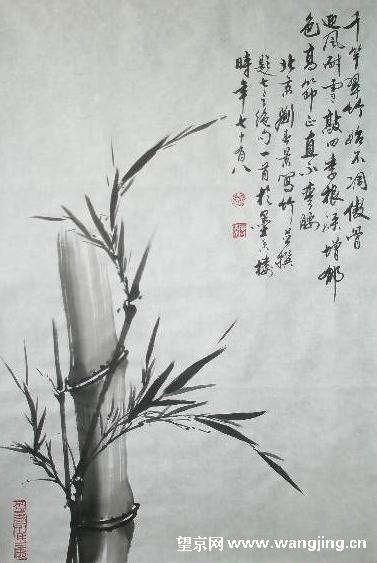 千竿翠竹始不凋傲骨
迎风耐雪敲四季根深增郁
色高节正直不弯腰
北京刘春景写竹并撰
题七言绝句一首於墨香楼
時年七十有八
望京网 www.wangjing.cn